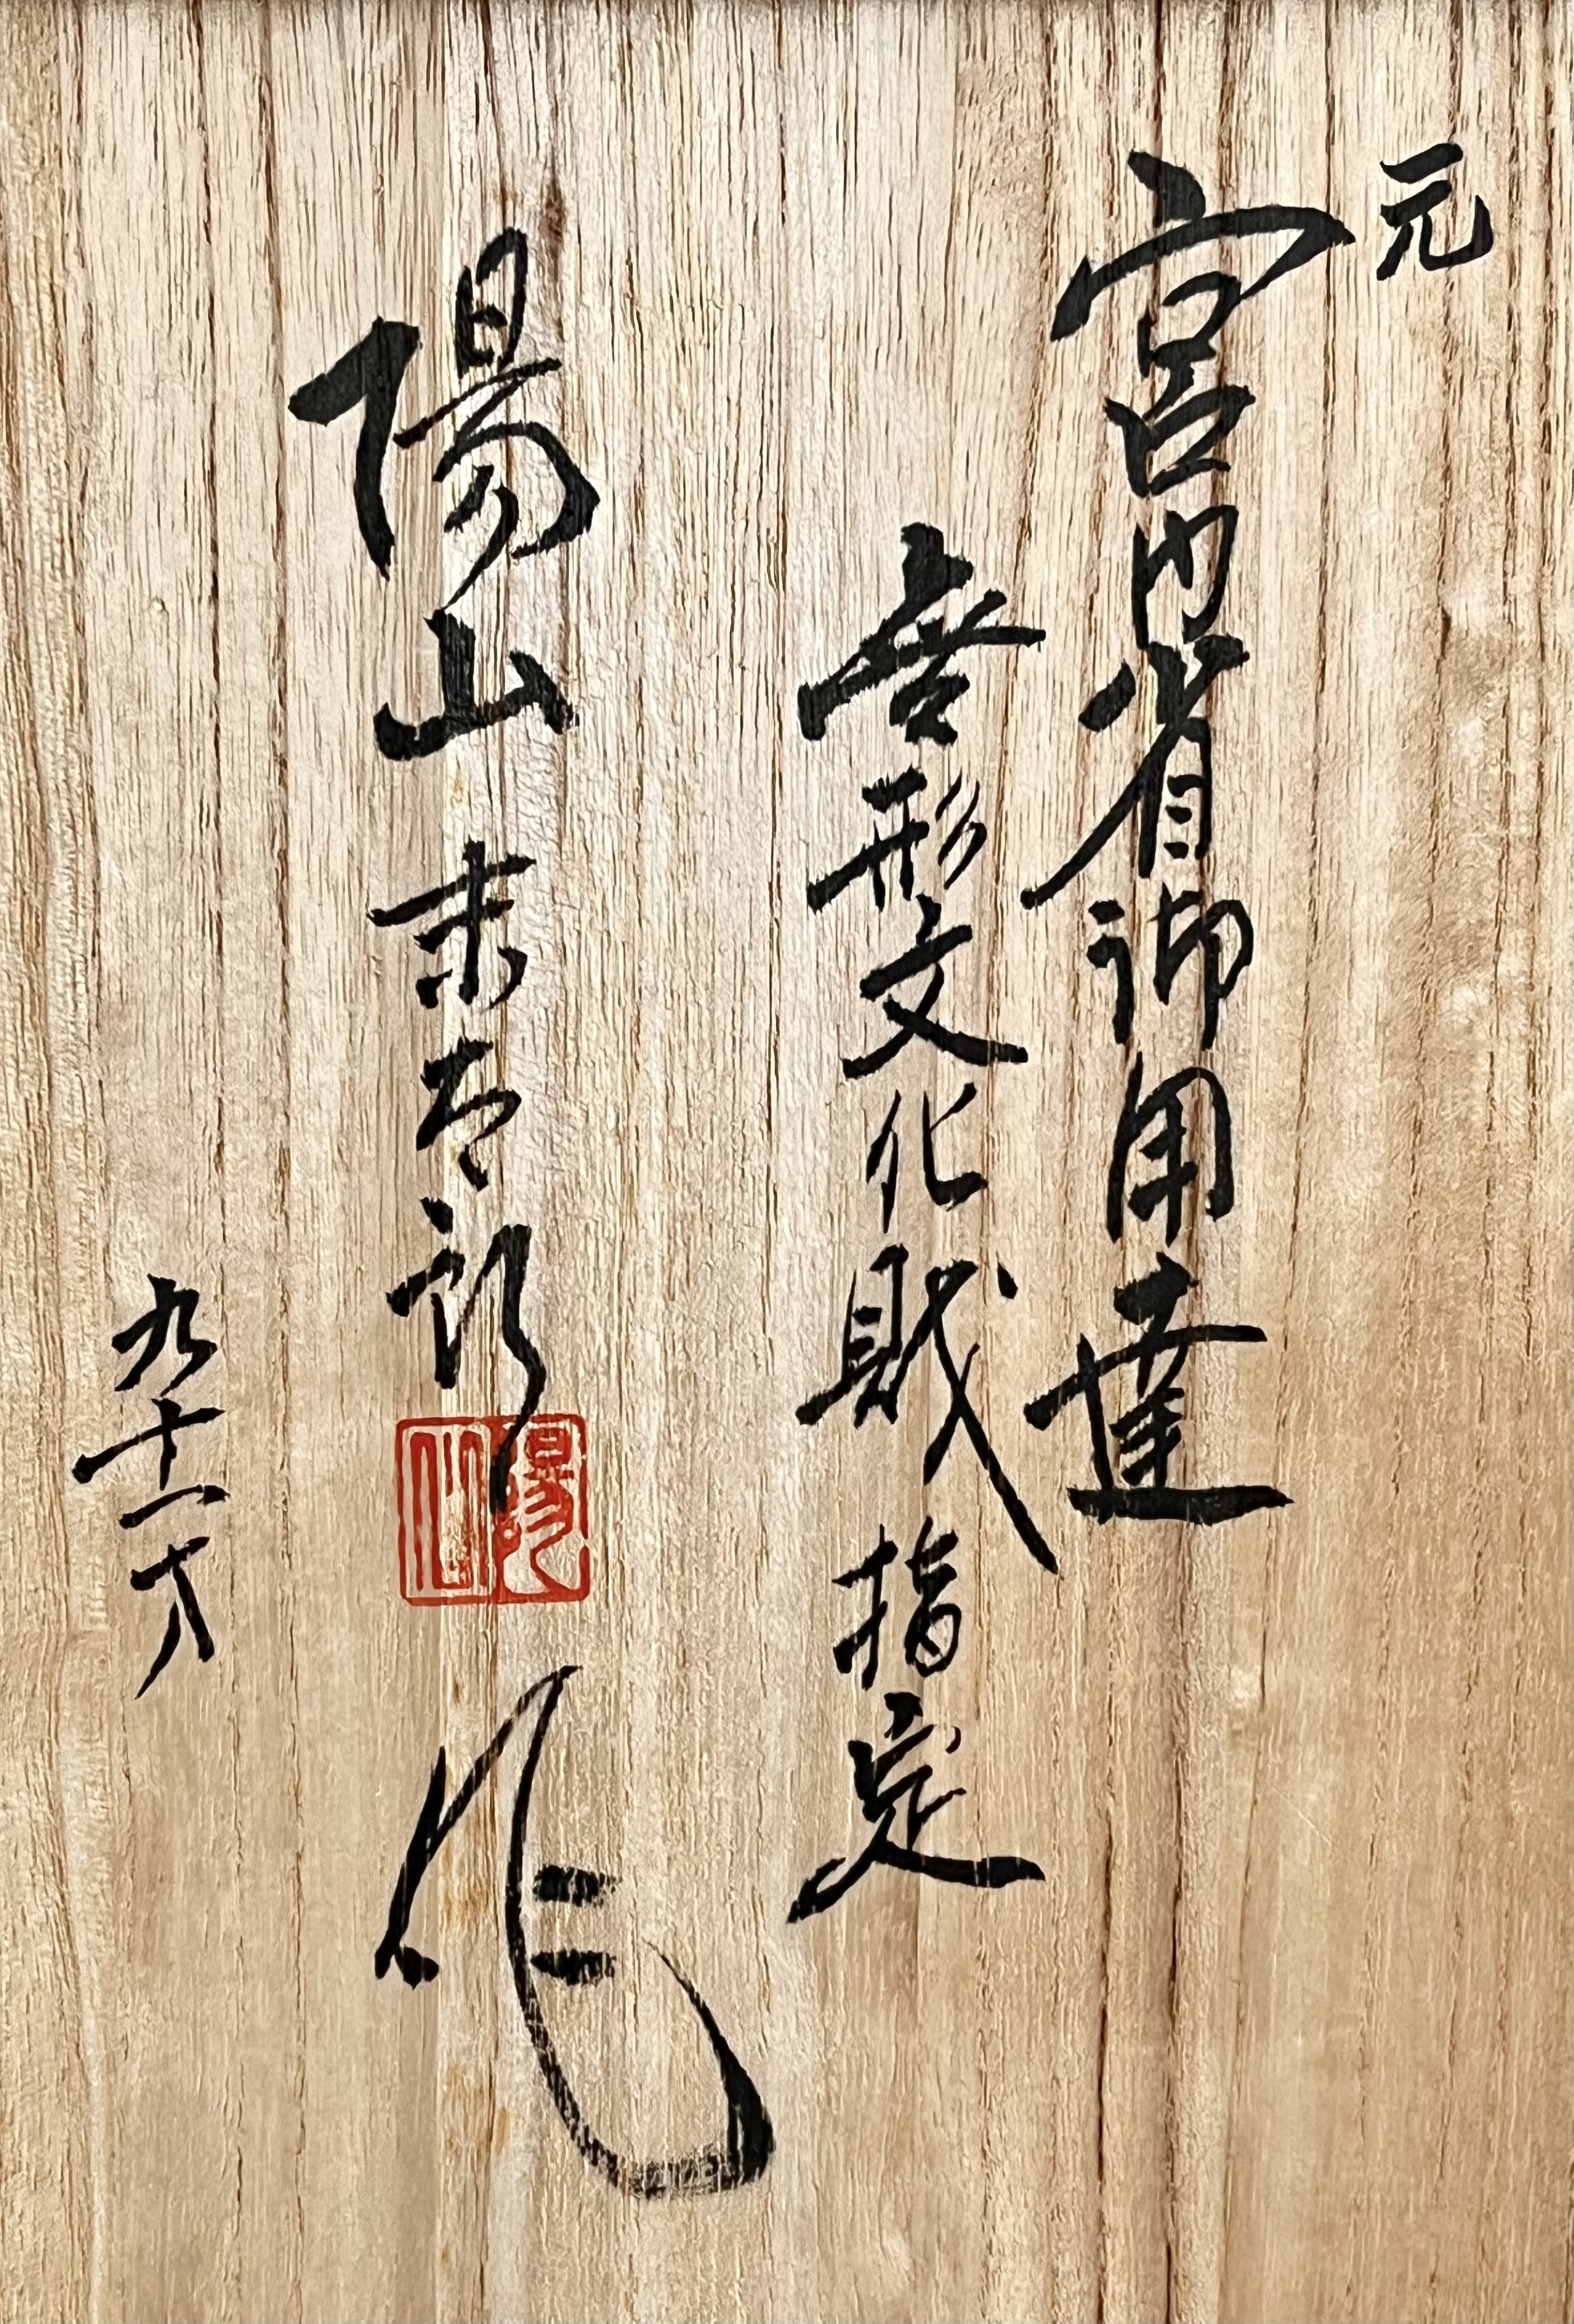 元
宮内省御用達
無形文化財指定
陽山末太郎
陽山
作
九十一才